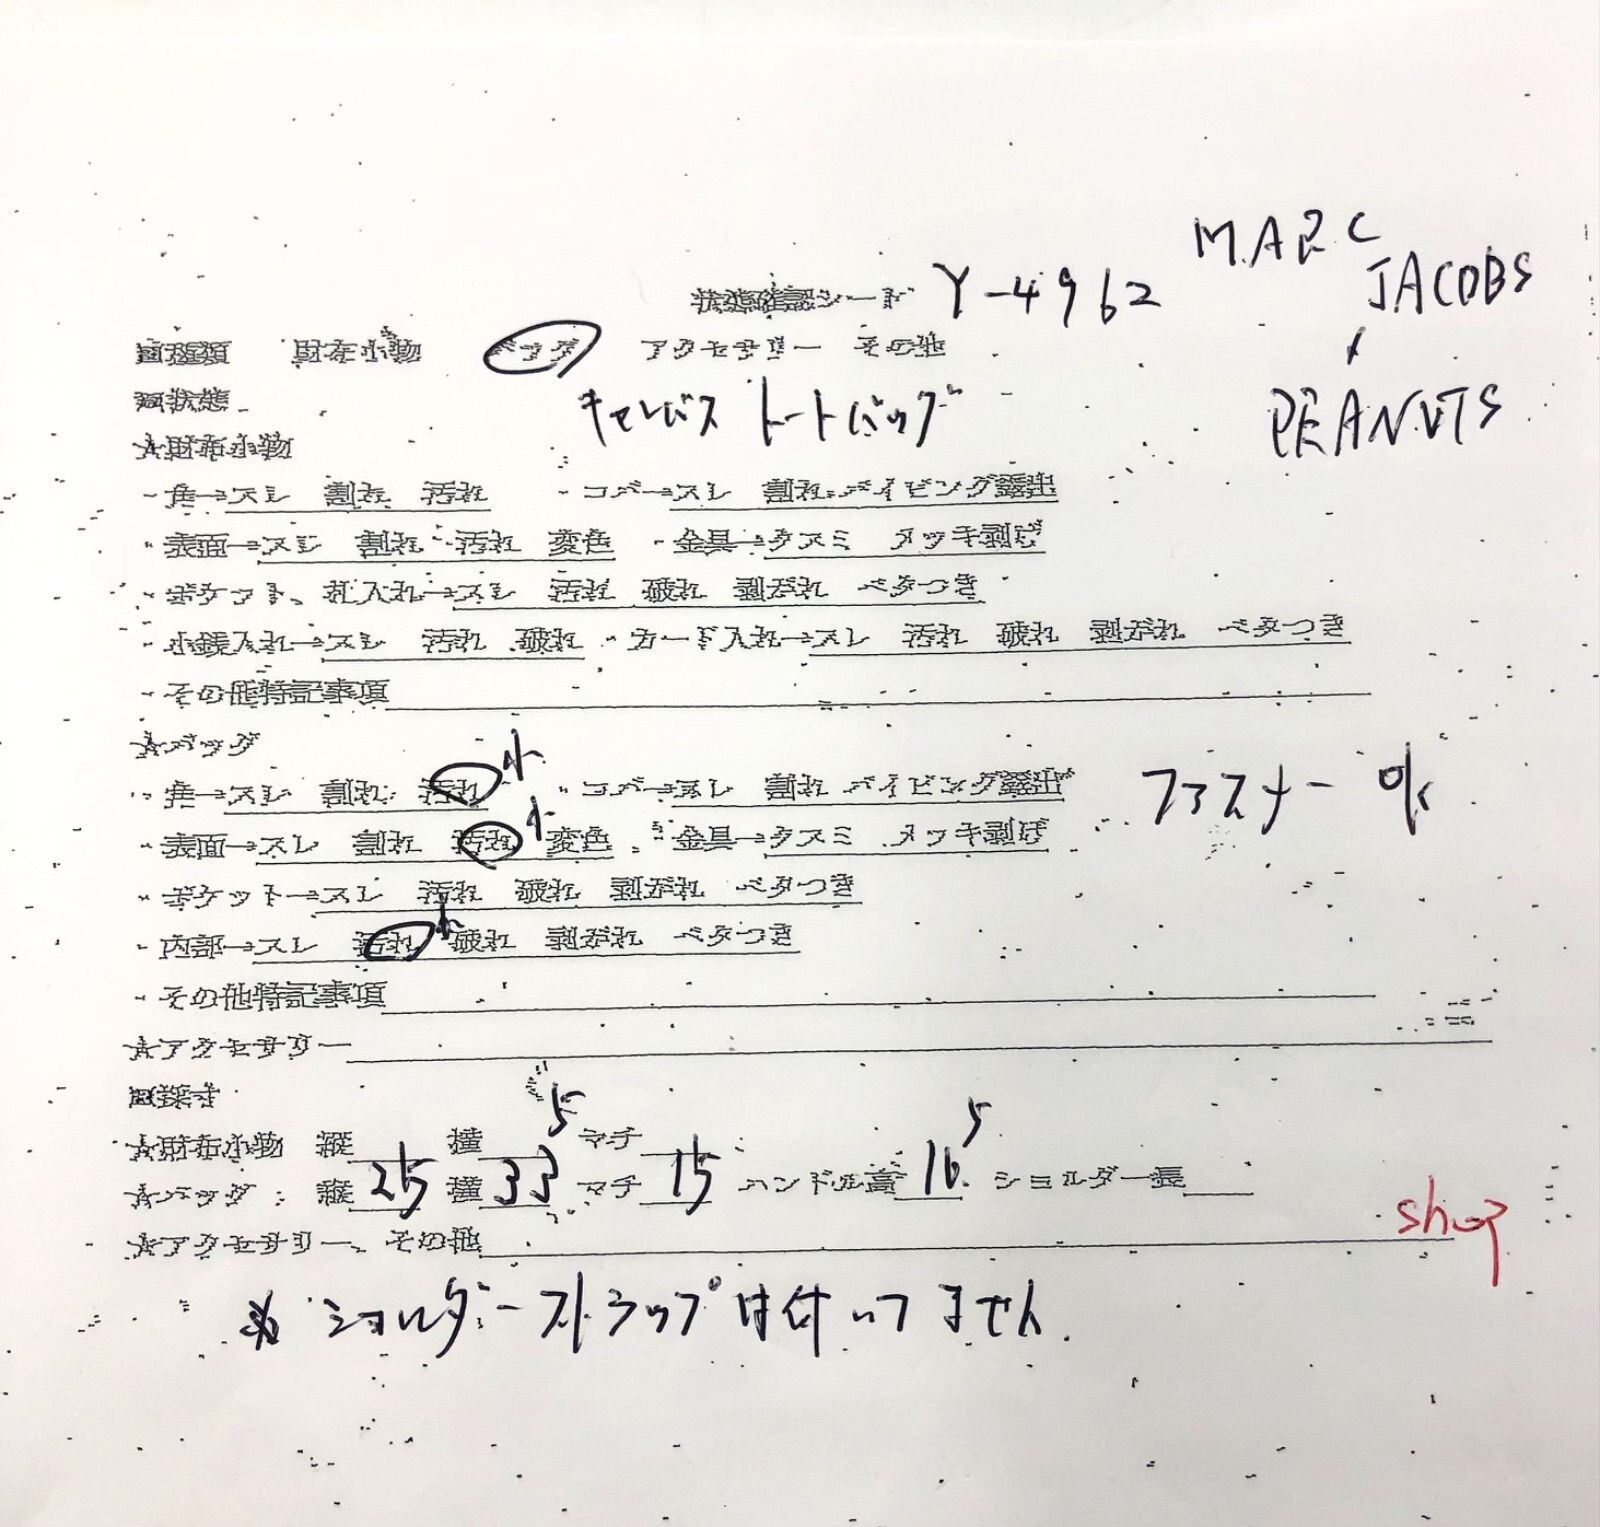 状態確認シート Y-4962 MARC JACOBS
回種類 財布小物 バッグ アクセサリー その他
× PEANUTS
回状態 キャンバス トートバッグ
☆財布小物
・角→スレ 割れ 汚れ ・コバ→スレ 割れ パイピング露出
・表面→スレ 割れ 汚れ 変色 ・金具→クスミ メッキ剥げ
・ポケット、札入れ→スレ 汚れ 破れ 剥がれ ベタつき
・小銭入れ→スレ 汚れ 破れ ・カード入れ→スレ 汚れ 破れ 剥がれ ベタつき
・その他特記事項
☆バッグ
・角→スレ 割れ 汚れ 小 ・コバ→スレ 割れ パイピング露出 ファスナー ok
・表面→スレ 割れ 汚れ 小 変色 ・金具→クスミ メッキ剥げ
・ポケット→スレ 汚れ 破れ 剥がれ ベタつき
・内部→スレ 汚れ 小 破れ 剥がれ ベタつき
・その他特記事項
☆アクセサリー
回採寸
☆財布小物 縦 横 マチ
☆バッグ:縦 25 横 33.5 マチ 15 ハンドル高 16.5 ショルダー長
☆アクセサリー、その他 shop
※ショルダーストラップは付いてません.